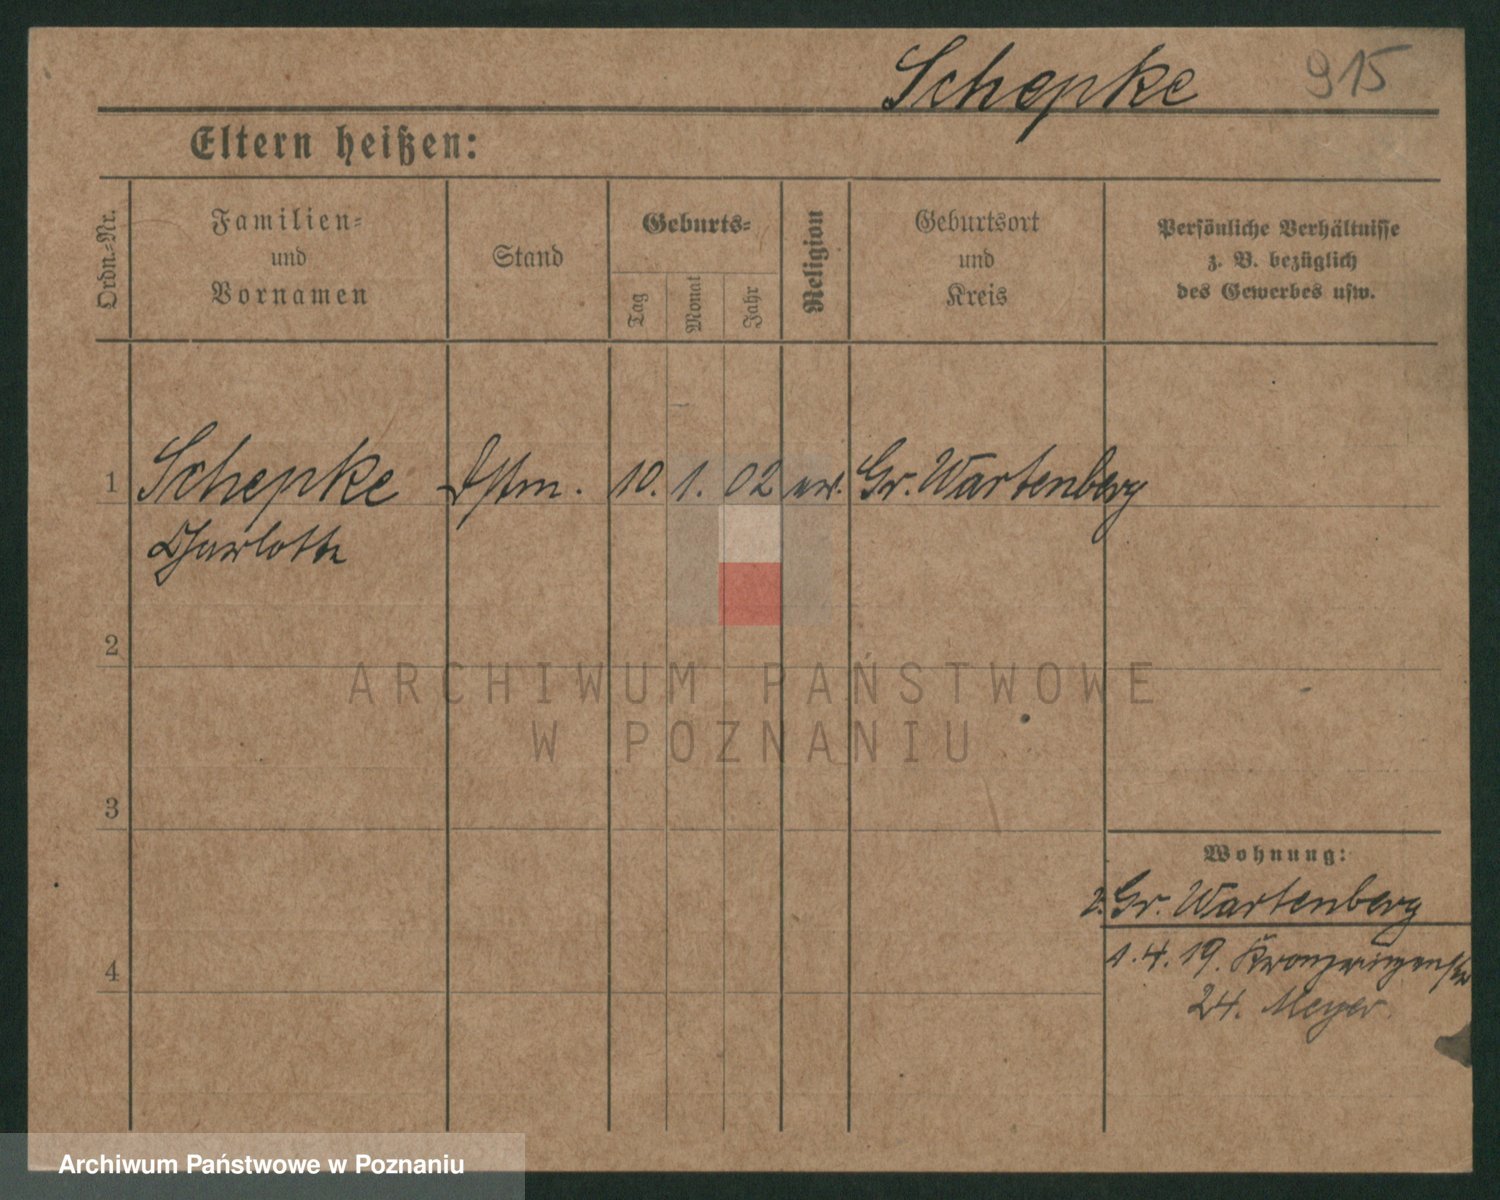 Schepke 915
Eltern heißen:
Ordn.-Nr.
Familien-
und
Vornamen
Stand
Geburts-
Tag
Monat
Jahr
Religion
Geburtsort
und
Kreis
Persönliche Verhältnisse
z. B. bezüglich
des Gewerbes usw.
1 Schepke 10. 1. 02 ev. Gr. Wartenberg
Charlotte
2
ARCHIWUM PAŃSTWOWE
W POZNANIU
3
Wohnung:
z. Gr. Wartenberg
1. 4. 19. Kronprinzenstr
4
24. Meyer
Archiwum Państwowe w Poznaniu